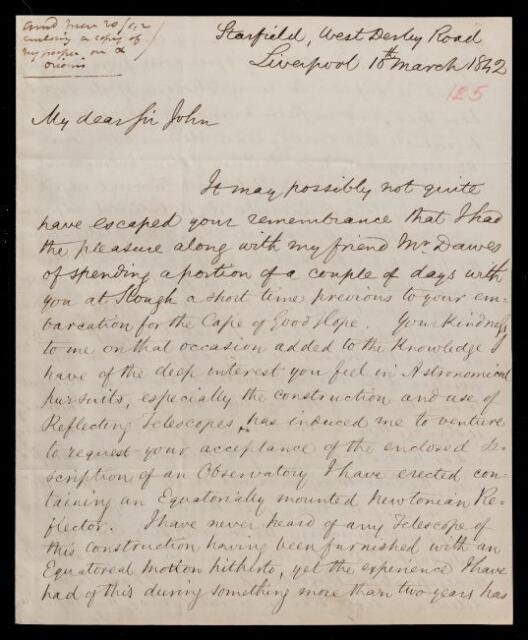 Ansd Mar 20/42
enclosing a copy of
my paper on α
Orionis
Starfield, West Derby Road
Liverpool 10th March 1842
125
My dear Sir John
It may possibly not quite
have escaped your remembrance that I had
the pleasure along with my friend Mr Dawes
of spending a portion of a couple of days with
you at Slough a short time previous to your em-
barcation for the Cape of Good Hope. Your kindness
to me on that occasion added to the Knowledge I
have of the deep interest you feel in Astronomical
pursuits, especially the construction and use of
Reflecting Telescopes, has induced me to venture
to request your acceptance of the enclosed De-
scription of an Observatory I have erected con-
taining an Equatorially mounted Newtonian Re-
flector. I have never heard of any Telescope of
this construction having been furnished with an
Equatoreal motion hitherto, yet the experience I have
had of this during something more than two years has